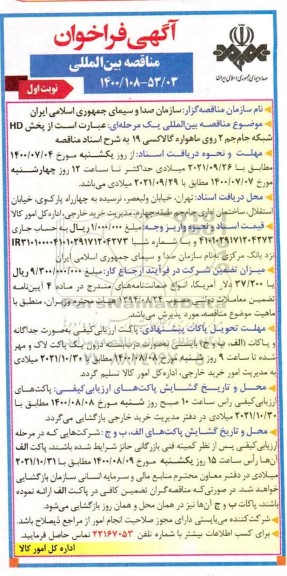 آگهی فراخوان
مناقصه بین‌المللی
۱۴۰۰/۱۰۸-۵۳/۰۳
نوبت اول
صدا و سیمای جمهوری اسلامی ایران
نام سازمان مناقصه‌گزار: سازمان صدا و سیمای جمهوری اسلامی ایران
موضوع مناقصه بین‌المللی یک مرحله‌ای: عبارت است از پخش HD
شبکه جام‌جم ۲ روی ماهواره گالاکسی ۱۹ به شرح اسناد مناقصه
مهلت و نحوه دریافت اسناد: از روز یکشنبه مورخ ۱۴۰۰/۰۷/۰۴
مطابق با ۲۰۲۱/۰۹/۲۶ میلادی حداکثر تا ساعت ۱۲ روز چهارشنبه
مورخ ۱۴۰۰/۰۷/۰۷ مطابق با ۲۰۲۱/۰۹/۲۹ میلادی می‌باشد.
محل دریافت اسناد: تهران، خیابان ولیعصر، نرسیده به چهارراه پارک‌وی، خیابان
استقلال، ساختمان اداری جام‌جم، طبقه چهارم، مدیریت خرید خارجی، اداره کل امور کالا
قیمت اسناد و نحوه واریز وجه: مبلغ ۱/۰۰۰/۰۰۰ ریال به حساب جاری
۴۱۰۱۰۲۹۱۷۱۲۰۴۲۷۳ و یا شماره شبا
نزد بانک مرکزی بنام سازمان صدا و سیمای جمهوری اسلامی ایران
میزان تضمین شرکت در فرآیند ارجاع کار: مبلغ ۹/۳۰۰/۰۰۰/۰۰۰ ریال
یا ۳۷/۲۰۰ دلار آمریکا، انواع ضمانت‌نامه‌های مندرج در ماده ۴ آیین‌نامه
تضمین معاملات دولتی مصوب هیئت محترم وزیران، منطبق با
ماهیت موضوع مناقصه، مورد پذیرش می‌باشد.
مهلت تحویل پاکات پیشنهادی: پاکت ارزیابی کیفی به‌صورت جداگانه
و پاکات (الف، ب و ج) بایستی بصورت دربسته در یک پاکت لاک و مهر
شده تا ساعت ۹ روز شنبه مورخ ۱۴۰۰/۰۸/۰۸ مطابق ۲۰۲۱/۱۰/۳۰ میلادی
به مدیریت امور خرید خارجی، اداره کل امور کالا تسلیم گردد.
محل و تاریخ گشایش پاکت‌های ارزیابی کیفی: پاکت‌های
ارزیابی کیفی راس ساعت ۱۰ صبح روز شنبه مورخ ۱۴۰۰/۰۸/۰۸ مطابق با
۲۰۲۱/۱۰/۳۰ میلادی در دفتر مدیریت خرید خارجی بازگشایی می‌گردد.
محل و تاریخ گشایش پاکت‌های الف، ب و ج: شرکت‌هایی که در مرحله
ارزیابی کیفی پس از نظر کمیته فنی بازرگانی حائز شرایط شده باشند، پاکت الف
آن‌ها رأس ساعت ۱۵ روز یکشنبه مورخ ۱۴۰۰/۰۸/۰۹ مطابق با ۲۰۲۱/۱۰/۳۱
میلادی در دفتر معاون محترم منابع مالی و سرمایه انسانی سازمان بازگشایی
خواهد شد. در صورتی‌که مناقصه‌گران تضمین کافی در پاکت الف ارائه نموده
باشند، پاکات ب و ج آن‌ها نیز در همان محل و همان روز بازگشایی می‌شود.
شرکت‌کننده می‌بایستی دارای مجوز صلاحیت انجام امور از مراجع ذیصلاح باشد.
برای کسب اطلاعات بیشتر با شماره تلفن ۲۲۱۶۷۰۵۳ تماس حاصل فرمایید.
اداره کل امور کالا